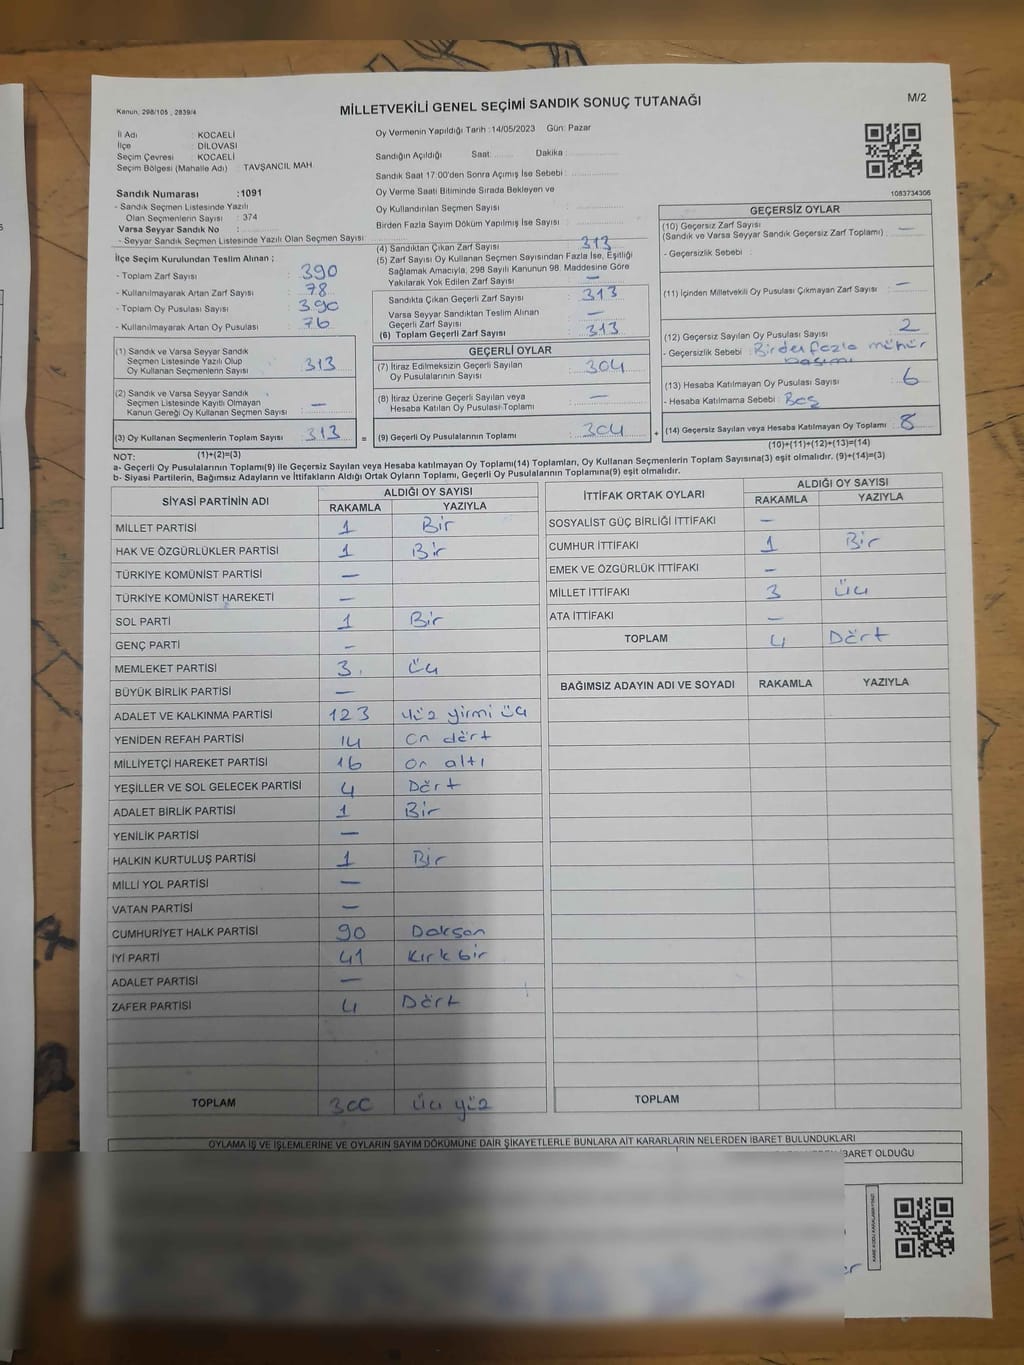 MİLLETVEKİLİ GENEL SEÇİMİ SANDIK SONUÇ TUTANAĞI
M/2
Kanun, 298/105 , 2839/4
İl Adı : KOCAELİ
İlçe : DİLOVASI
Seçim Çevresi : KOCAELİ
Seçim Bölgesi (Mahalle Adı) : TAVŞANCIL MAH.
Sandık Numarası :1091
- Sandık Seçmen Listesinde Yazılı
Olan Seçmenlerin Sayısı : 374
Varsa Seyyar Sandık No :
- Seyyar Sandık Seçmen Listesinde Yazılı Olan Seçmen Sayısı:
İlçe Seçim Kurulundan Teslim Alınan ;
- Toplam Zarf Sayısı : 390
- Kullanılmayarak Artan Zarf Sayısı : 78
- Toplam Oy Pusulası Sayısı : 390
- Kullanılmayarak Artan Oy Pusulası : 76
(1) Sandık ve Varsa Seyyar Sandık
Seçmen Listesinde Yazılı Olup
Oy Kullanan Seçmenlerin Sayısı : 313
(2) Sandık ve Varsa Seyyar Sandık
Seçmen Listesinde Kayıtlı Olmayan
Kanun Gereği Oy Kullanan Seçmen Sayısı : —
(3) Oy Kullanan Seçmenlerin Toplam Sayısı : 313 =
Oy Vermenin Yapıldığı Tarih :14/05/2023 Gün: Pazar
Sandığın Açıldığı Saat: Dakika :
Sandık Saat 17:00'den Sonra Açımış İse Sebebi :
Oy Verme Saati Bitiminde Sırada Bekleyen ve
Oy Kullandırılan Seçmen Sayısı :
Birden Fazla Sayım Döküm Yapılmış İse Sayısı :
(4) Sandıktan Çıkan Zarf Sayısı : 313
(5) Zarf Sayısı Oy Kullanan Seçmen Sayısından Fazla İse, Eşitliği
Sağlamak Amacıyla, 298 Sayılı Kanunun 98. Maddesine Göre
Yakılarak Yok Edilen Zarf Sayısı : —
Sandıkta Çıkan Geçerli Zarf Sayısı : 313
Varsa Seyyar Sandıktan Teslim Alınan
Geçerli Zarf Sayısı : —
(6) Toplam Geçerli Zarf Sayısı : 313
GEÇERLİ OYLAR
(7) İtiraz Edilmeksizin Geçerli Sayılan
Oy Pusulalarının Sayısı : 304
(8) İtiraz Üzerine Geçerli Sayılan veya
Hesaba Katılan Oy Pusulası Toplamı : —
(9) Geçerli Oy Pusulalarının Toplamı : 304 +
1083734306
GEÇERSİZ OYLAR
(10) Geçersiz Zarf Sayısı
(Sandık ve Varsa Seyyar Sandık Geçersiz Zarf Toplamı) : —
- Geçersizlik Sebebi :
(11) İçinden Milletvekili Oy Pusulası Çıkmayan Zarf Sayısı : —
(12) Geçersiz Sayılan Oy Pusulası Sayısı : 2
- Geçersizlik Sebebi : Birden fazla mühür
basımı
(13) Hesaba Katılmayan Oy Pusulası Sayısı : 6
- Hesaba Katılmama Sebebi : Boş
(14) Geçersiz Sayılan veya Hesaba Katılmayan Oy Toplamı : 8
(10)+(11)+(12)+(13)=(14)
NOT: (1)+(2)=(3)
a- Geçerli Oy Pusulalarının Toplamı(9) ile Geçersiz Sayılan veya Hesaba katılmayan Oy Toplamı(14) Toplamları, Oy Kullanan Seçmenlerin Toplam Sayısına(3) eşit olmalıdır. (9)+(14)=(3)
b- Siyasi Partilerin, Bağımsız Adayların ve İttifakların Aldığı Oy Sayıları ile İttifakların Aldığı Ortak Oyların Toplamı, Geçerli Oy Pusulalarının Toplamına(9) eşit olmalıdır.
SİYASİ PARTİNİN ADI ALDIĞI OY SAYISI
RAKAMLA YAZIYLA
MİLLET PARTİSİ 1 Bir
HAK VE ÖZGÜRLÜKLER PARTİSİ 1 Bir
TÜRKİYE KOMÜNİST PARTİSİ —
TÜRKİYE KOMÜNİST HAREKETİ —
SOL PARTİ 1 Bir
GENÇ PARTİ —
MEMLEKET PARTİSİ 3 üç
BÜYÜK BİRLİK PARTİSİ —
ADALET VE KALKINMA PARTİSİ 123 yüz yirmi üç
YENİDEN REFAH PARTİSİ 14 on dört
MİLLİYETÇİ HAREKET PARTİSİ 16 on altı
YEŞİLLER VE SOL GELECEK PARTİSİ 4 Dört
ADALET BİRLİK PARTİSİ 1 Bir
YENİLİK PARTİSİ —
HALKIN KURTULUŞ PARTİSİ 1 Bir
MİLLİ YOL PARTİSİ —
VATAN PARTİSİ —
CUMHURİYET HALK PARTİSİ 90 Doksan
İYİ PARTİ 41 Kırk bir
ADALET PARTİSİ —
ZAFER PARTİSİ 4 Dört
TOPLAM 300 üç yüz
İTTİFAK ORTAK OYLARI ALDIĞI OY SAYISI
RAKAMLA YAZIYLA
SOSYALİST GÜÇ BİRLİĞİ İTTİFAKI —
CUMHUR İTTİFAKI 1 Bir
EMEK VE ÖZGÜRLÜK İTTİFAKI —
MİLLET İTTİFAKI 3 üç
ATA İTTİFAKI —
TOPLAM 4 Dört
BAĞIMSIZ ADAYIN ADI VE SOYADI RAKAMLA YAZIYLA
TOPLAM
OYLAMA İŞ VE İŞLEMLERİNE VE OYLARIN SAYIM DÖKÜMÜNE DAİR ŞİKAYETLERLE BUNLARA AİT KARARLARIN NELERDEN İBARET BULUNDUKLARI
İBARET OLDUĞU